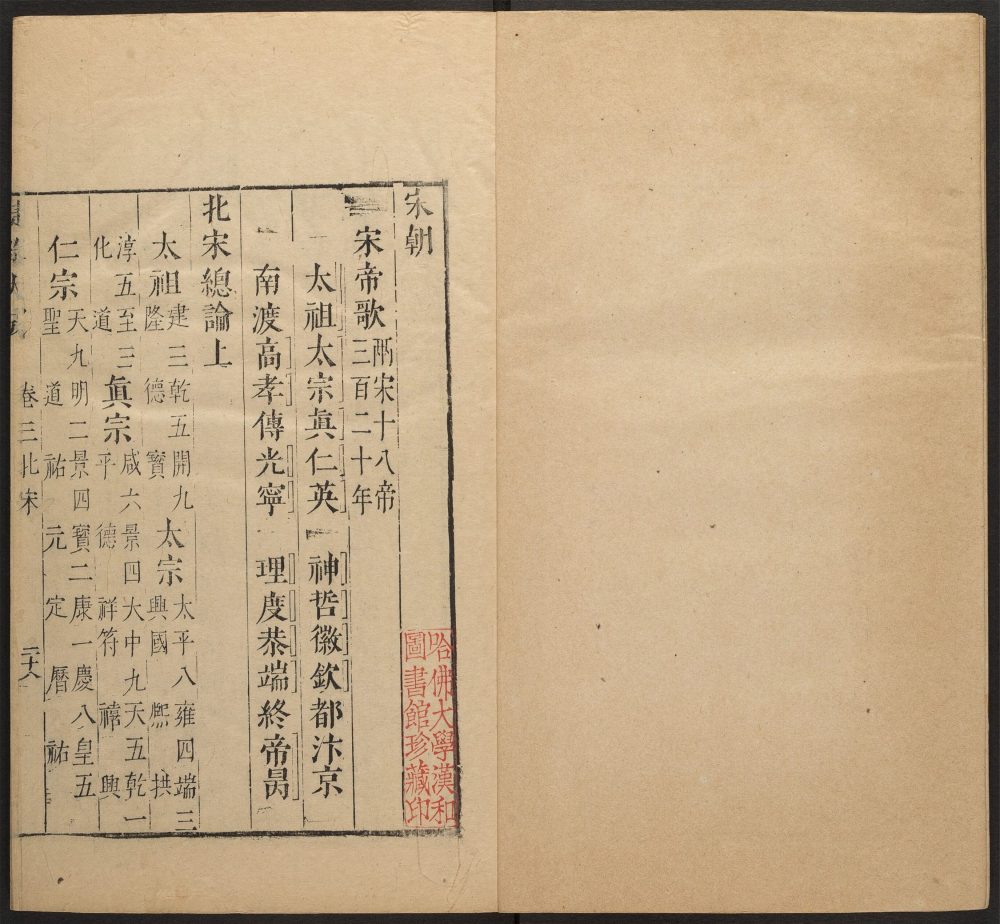 宋朝
宋帝歌
兩宋十八帝
三百二十年
太祖太宗眞仁英 神哲徽欽都汴京
南渡高孝傳光寧 理度恭端終帝昺
北宋總論上
太祖
建三乾五開九
隆 德 寶
太宗
太平八雍四端三
興國 熙 拱
淳五至三
化 道
眞宗
咸六景四大中九天五乾一
平 德 祥符 禧 興
仁宗
天九明二景四寶二康一慶八皇五
聖 道 祐 元 定 曆 祐
卷三北宋
二十六
哈佛大學漢和
圖書館珍藏印